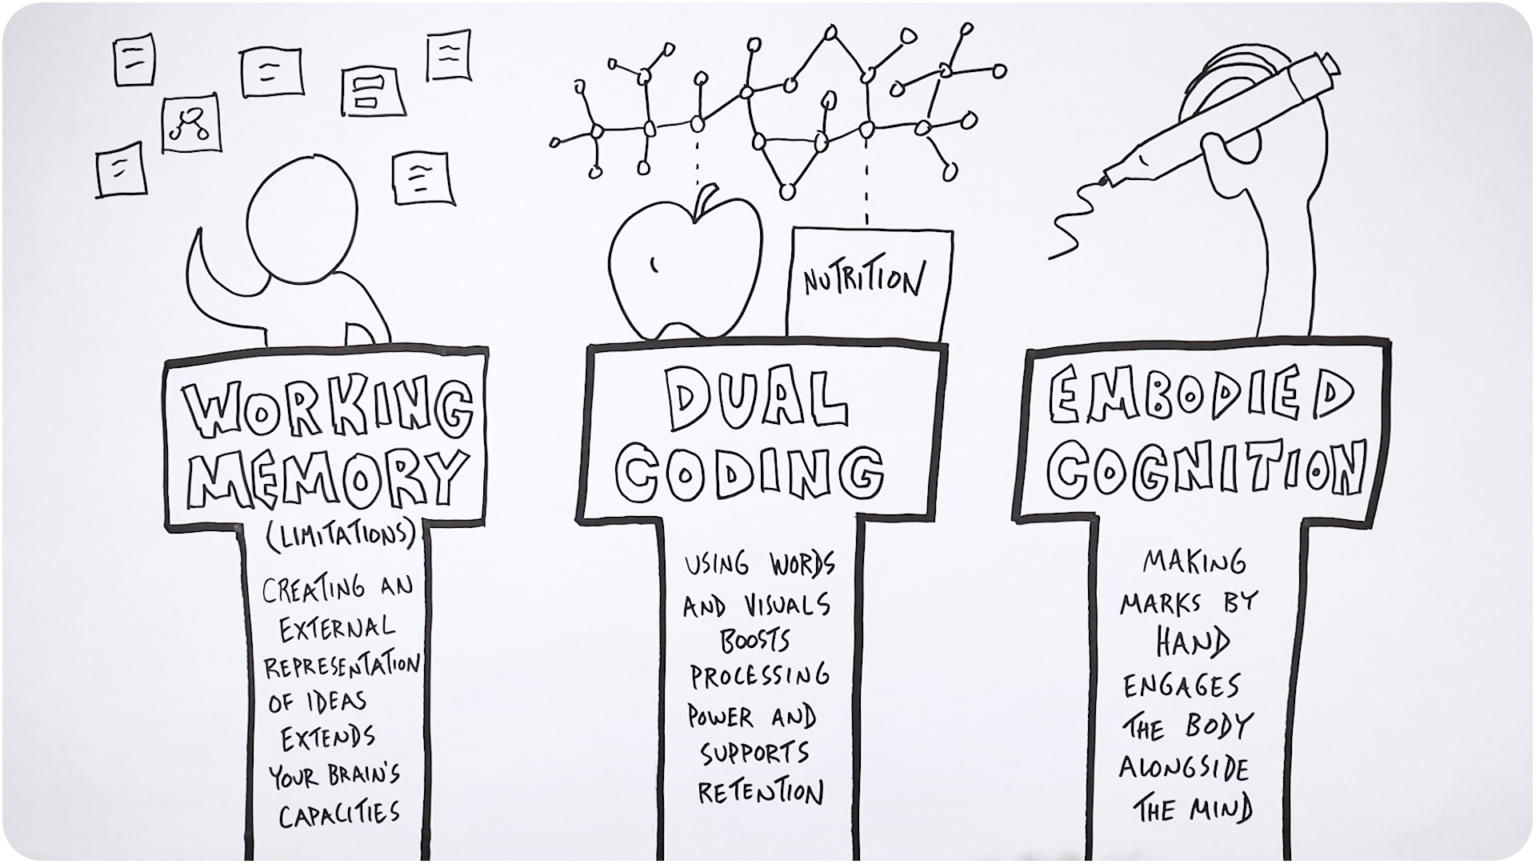 NUTRITION
WORKING
MEMORY
(LIMITATIONS)
CREATING AN
EXTERNAL
REPRESENTATION
OF IDEAS
EXTENDS
YOUR BRAIN'S
CAPACITIES
DUAL
CODING
USING WORDS
AND VISUALS
BOOSTS
PROCESSING
POWER AND
SUPPORTS
RETENTION
EMBODIED
COGNITION
MAKING
MARKS BY
HAND
ENGAGES
THE BODY
ALONGSIDE
THE MIND